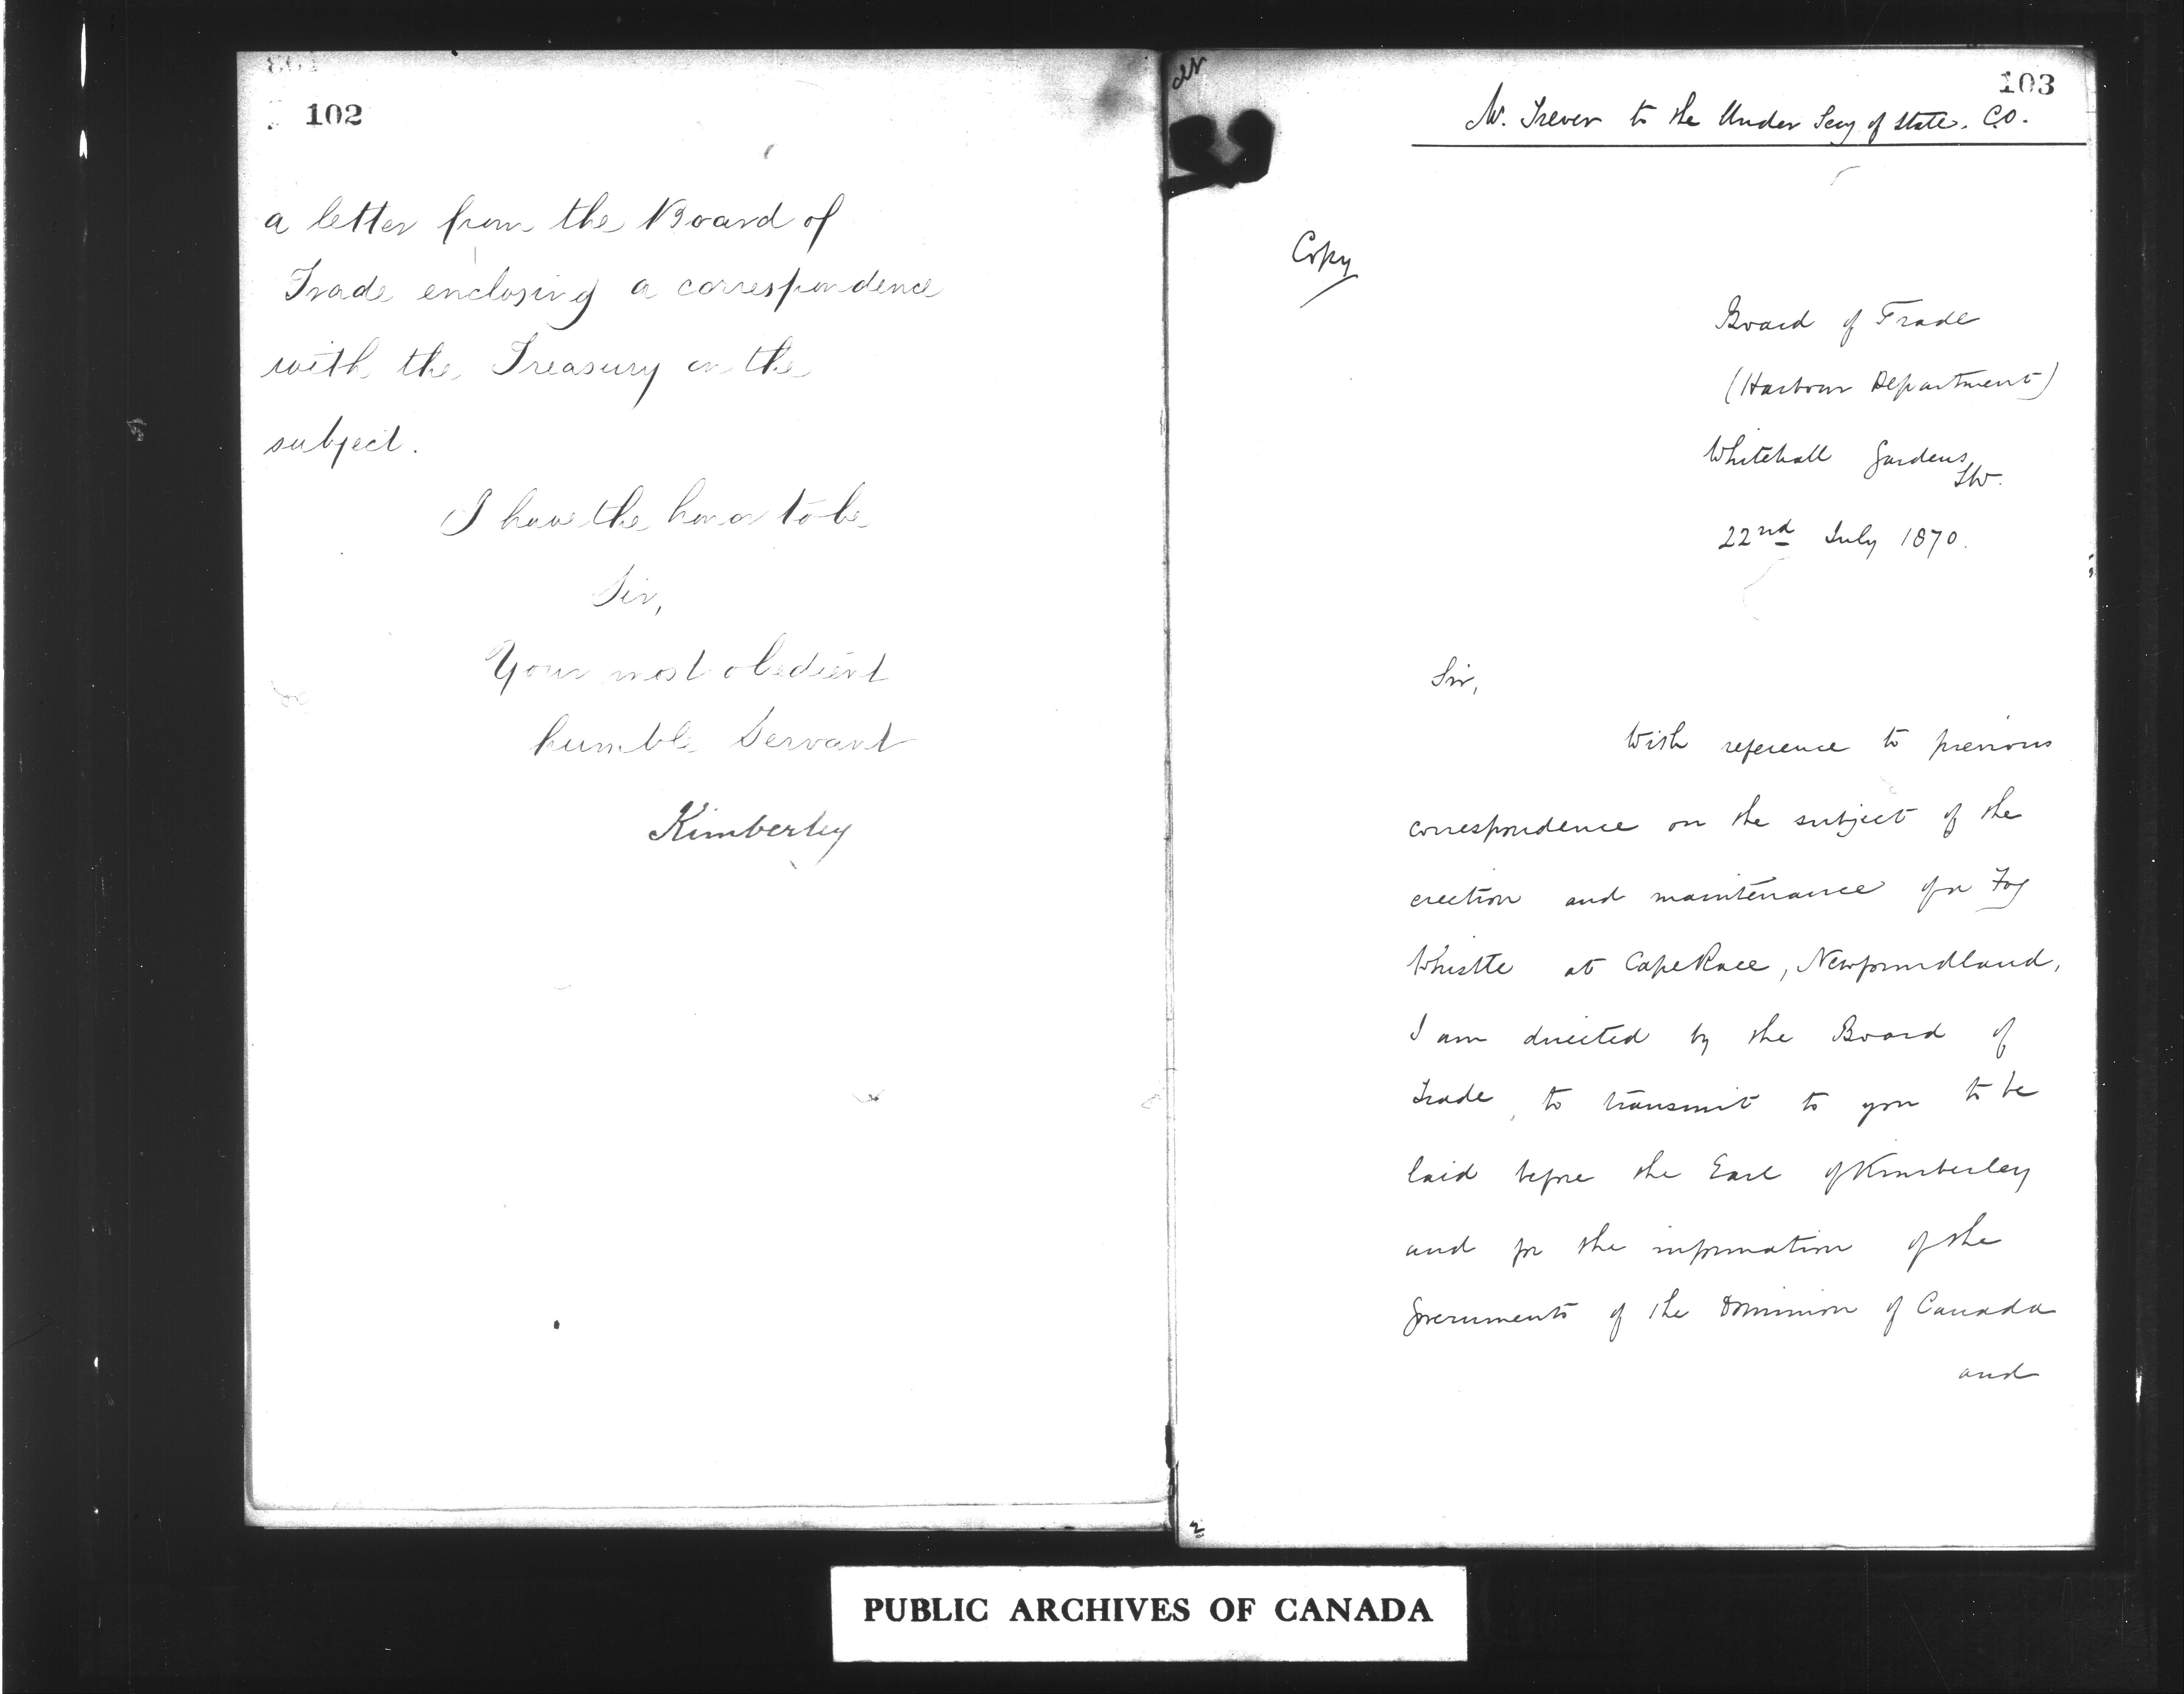 102
a letter from the Board of
Trade enclosing a correspondence
with the Treasury on the
subject.
I have the honor to be
Sir,
Your most obedient
humble Servant
Kimberley
103
Mr. Trevor to the Under Secy of State. C.O.
Copy
Board of Trade
(Harbour Department)
Whitehall Gardens
S.W.
22nd July 1870.
Sir,
With reference to previous
correspondence on the subject of the
erection and maintenance of a Fog
Whistle at Cape Race, Newfoundland,
I am directed by the Board of
Trade, to transmit to you to be
laid before the Earl of Kimberley
and for the information of the
Governments of the Dominion of Canada
and
2
PUBLIC ARCHIVES OF CANADA